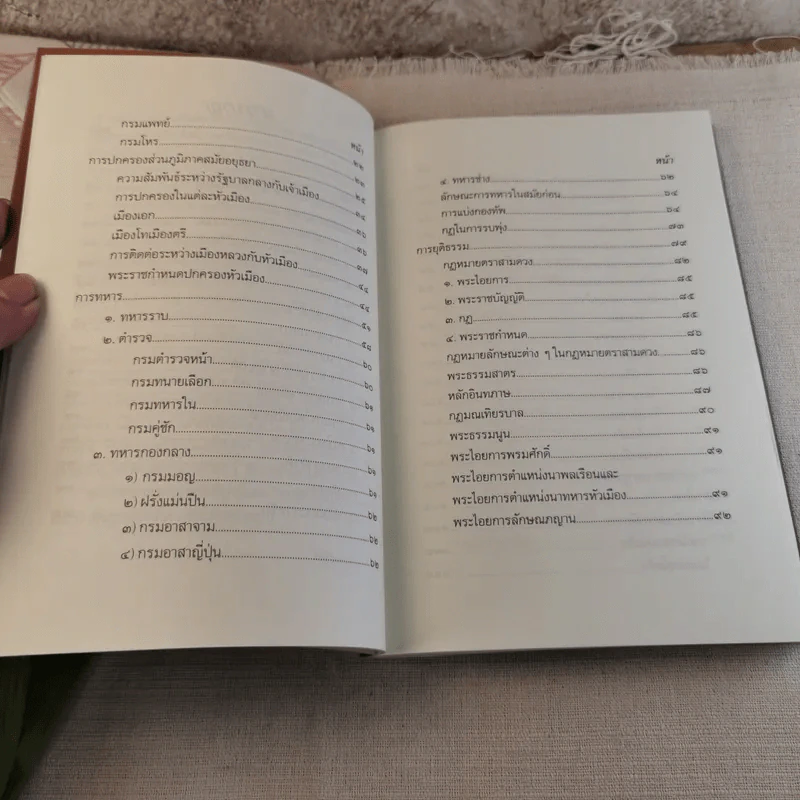 หน้า
กรมแพทย์....................๒๒
กรมโหร....................๒๓
การปกครองส่วนภูมิภาคสมัยอยุธยา....................๒๕
ความสัมพันธ์ระหว่างรัฐบาลกลางกับเจ้าเมือง....................๓๔
การปกครองในแต่ละหัวเมือง....................๓๖
เมืองเอก....................๓๖
เมืองโทเมืองตรี....................๓๗
การติดต่อระหว่างเมืองหลวงกับหัวเมือง....................๔๔
พระราชกำหนดปกครองหัวเมือง....................๔๕
การทหาร....................๕๑
๑. ทหารราบ....................๕๘
๒. ตำรวจ....................๖๐
กรมตำรวจหน้า....................๖๐
กรมทนายเลือก....................๖๑
กรมทหารใน....................๖๑
กรมคู่ชัก....................๖๑
๓. ทหารกองกลาง....................๖๑
๑) กรมมอญ....................๖๑
๒) ฝรั่งแม่นปืน....................๖๒
๓) กรมอาสาจาม....................๖๒
๔) กรมอาสาญี่ปุ่น....................๖๒
หน้า
๔. ทหารช่าง....................๖๒
ลักษณะการทหารในสมัยก่อน....................๖๔
การแบ่งกองทัพ....................๖๔
กฎในการรบพุ่ง....................๗๓
การยุติธรรม....................๗๔
กฎหมายตราสามดวง....................๘๒
๑. พระไอยการ....................๘๕
๒. พระราชบัญญัติ....................๘๕
๓. กฎ....................๘๕
๔. พระราชกำหนด....................๘๖
กฎหมายลักษณะต่าง ๆ ในกฎหมายตราสามดวง....................๘๖
พระธรรมสาตร....................๘๖
หลักอินทภาษ....................๘๗
กฎมณเทียรบาล....................๙๐
พระธรรมนูน....................๙๑
พระไอยการพรมศักดิ์....................๙๑
พระไอยการตำแหน่งนาพลเรือนและ
พระไอยการตำแหน่งนาทหารหัวเมือง....................๙๑
พระไอยการลักษณภญาน....................๙๒